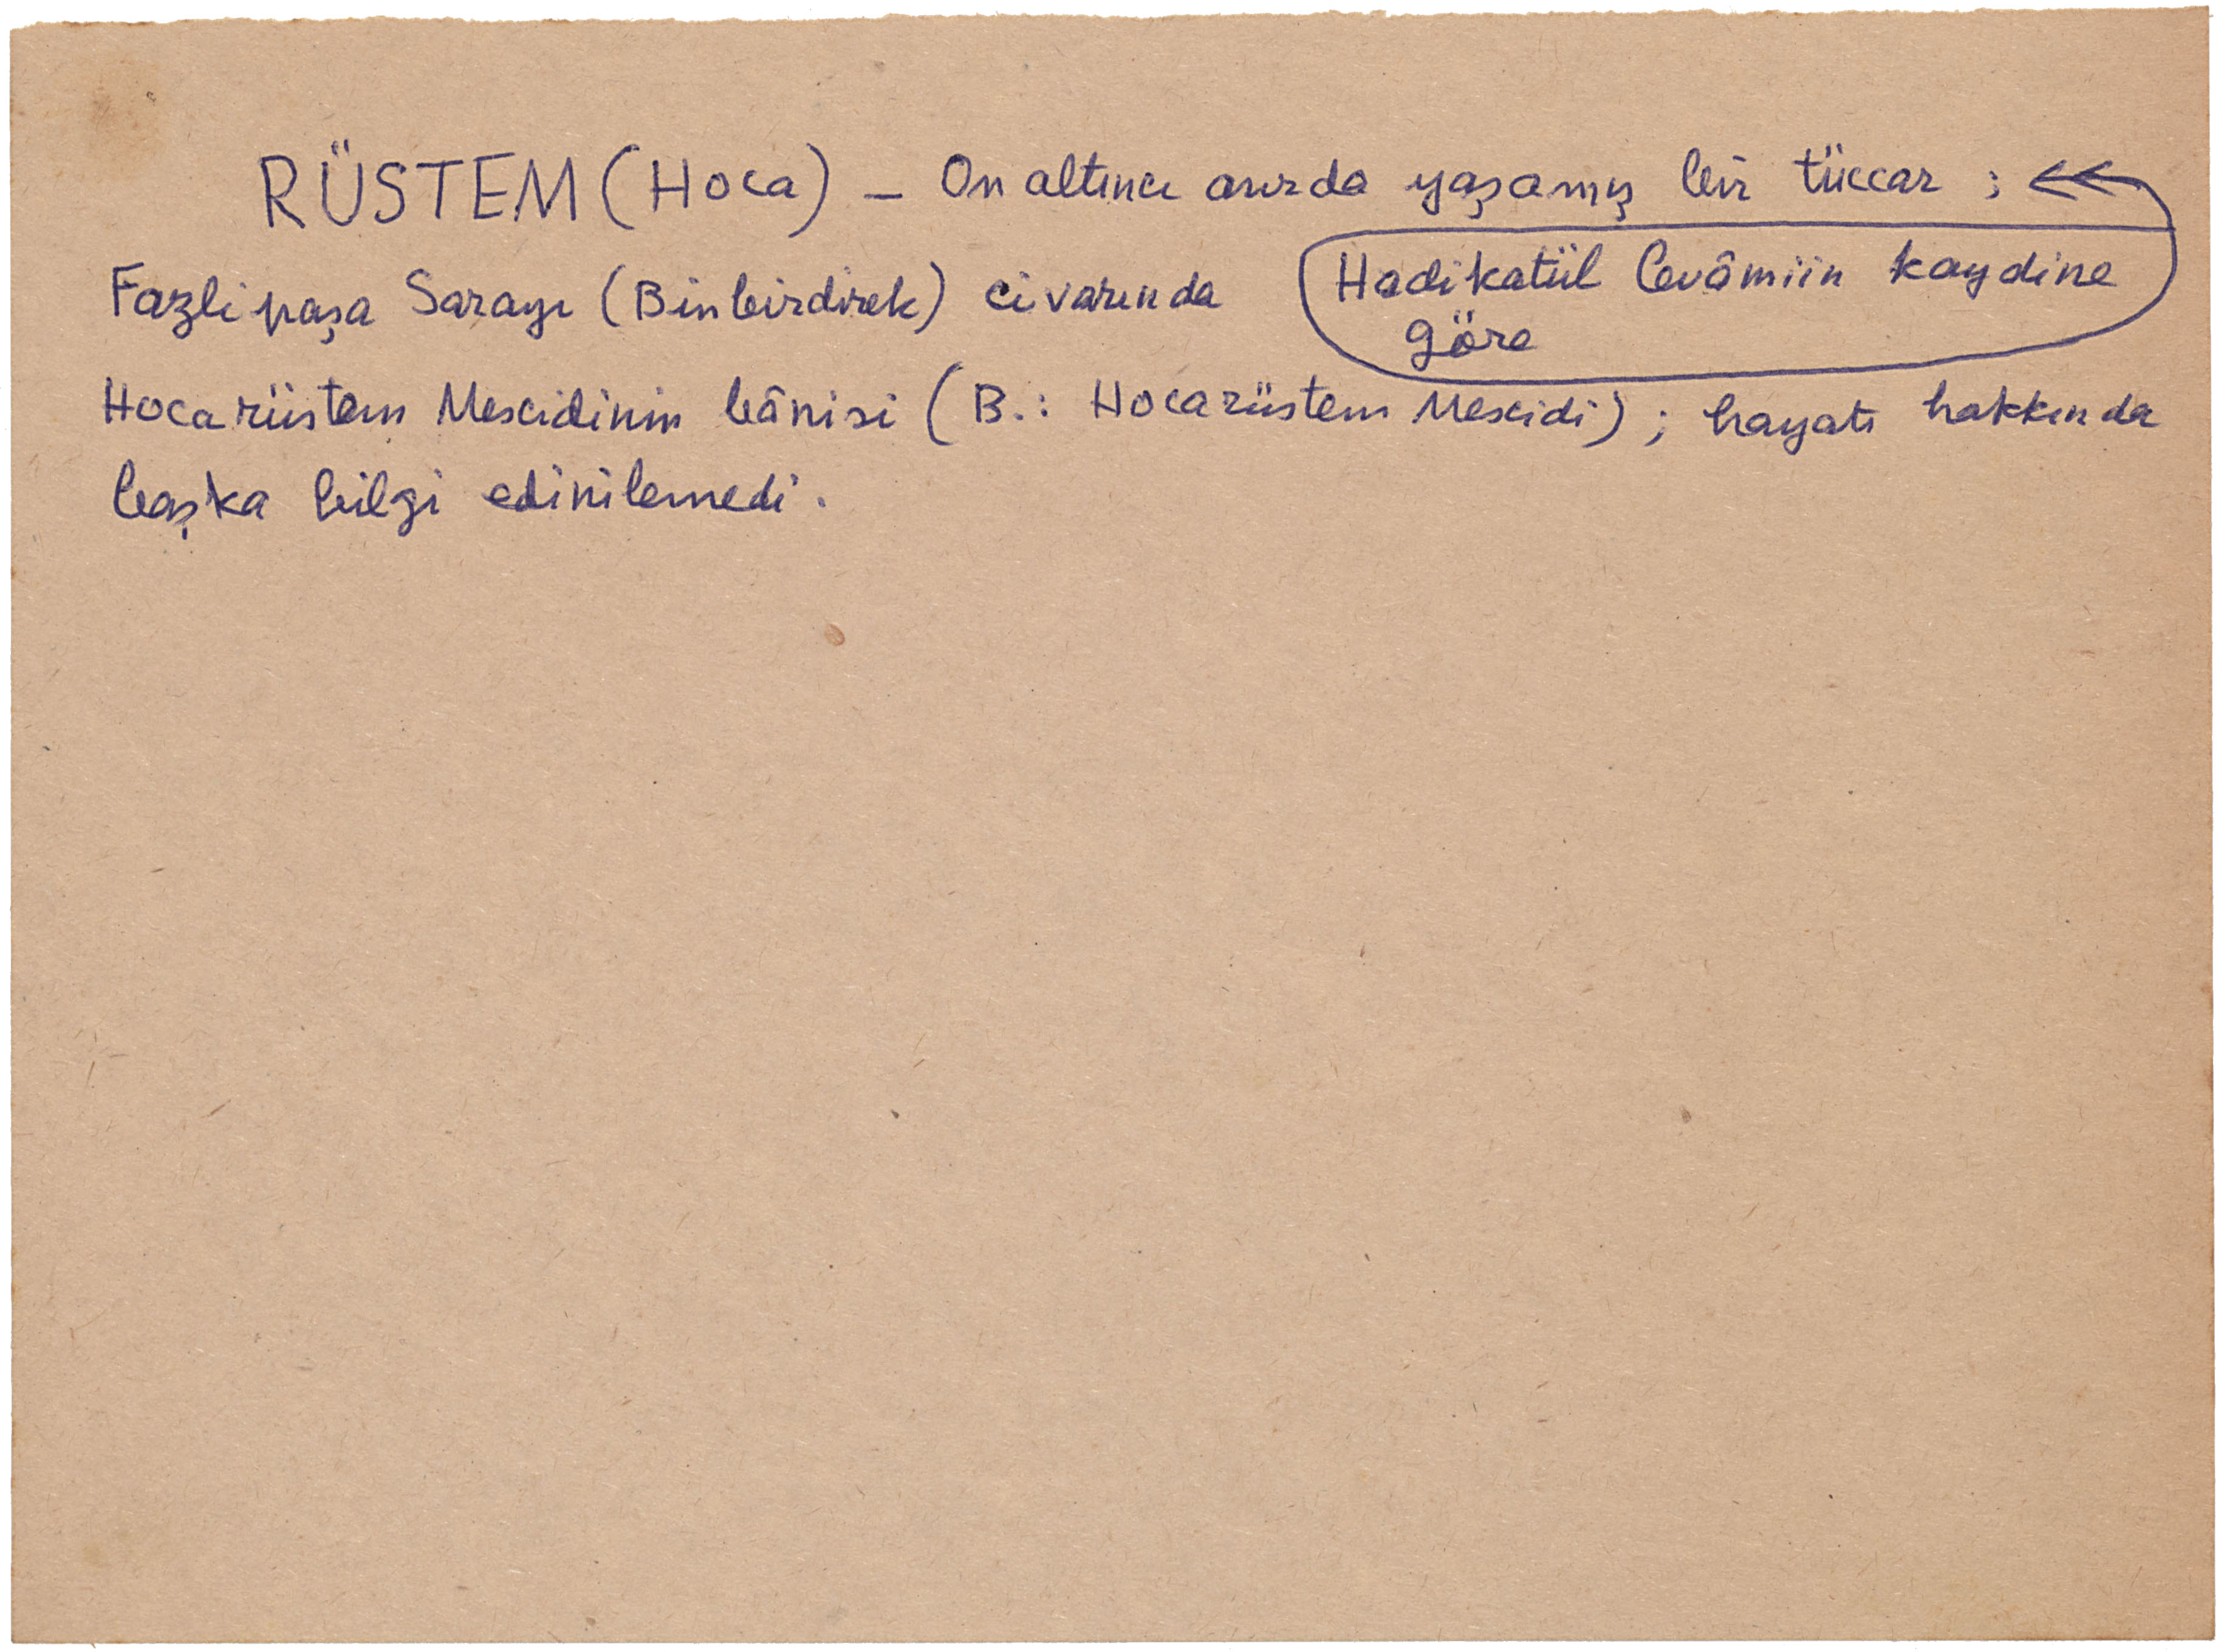 RÜSTEM (Hoca) – On altıncı asırda yaşamış bir tüccar ;
Fazlipaşa Sarayı (Binbirdirek) civarında
Hadikatül Cevâmiin kaydine
göre
Hocarüstem Mescidinin bânisi (B.: Hocarüstem Mescidi) ; hayatı hakkında
başka bilgi edinilemedi.